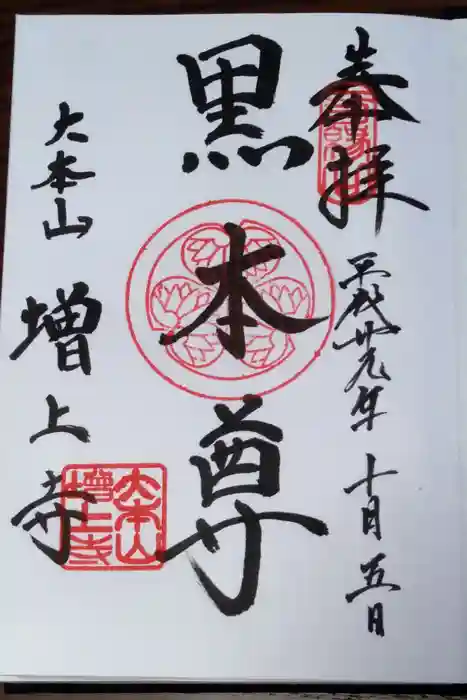 奉拝
平成廿九年十月五日
黒本尊
大本山
増上寺
大本山
増上寺